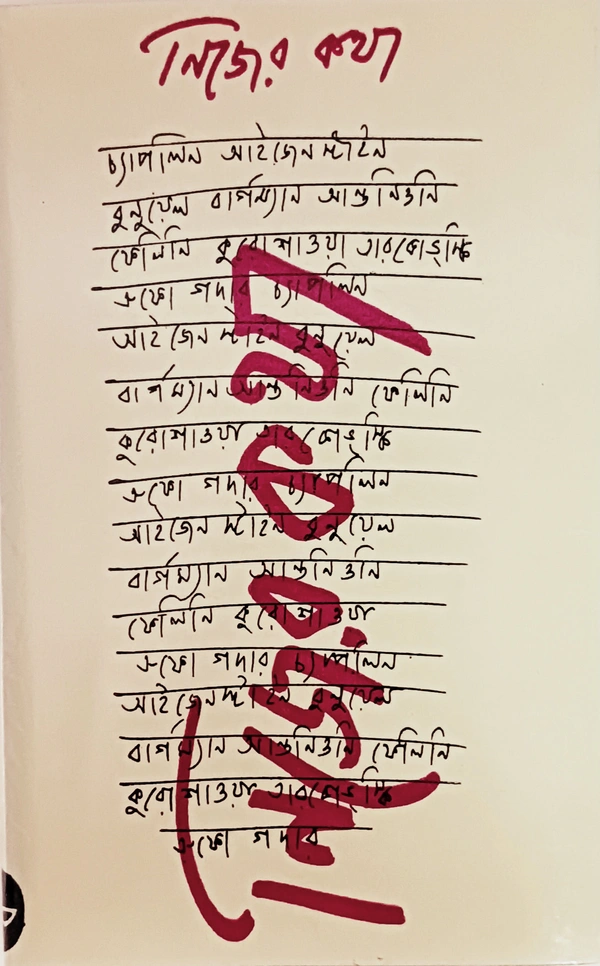 নিজের কথা
চ্যাপলিন আইজেনস্টাইন
বুনুয়েল বার্গম্যান আন্তনিওনি
ফেলিনি কুরোশাওয়া তারকোভ্‌স্কি
ত্রুফো গদার চ্যাপলিন
আইজেনস্টাইন বুনুয়েল
বার্গম্যান আন্তনিওনি ফেলিনি
কুরোশাওয়া তারকোভ্‌স্কি
ত্রুফো গদার চ্যাপলিন
আইজেনস্টাইন বুনুয়েল
বার্গম্যান আন্তনিওনি
ফেলিনি কুরোশাওয়া
ত্রুফো গদার চ্যাপলিন
আইজেনস্টাইন বুনুয়েল
বার্গম্যান আন্তনিওনি ফেলিনি
কুরোশাওয়া তারকোভ্‌স্কি
ত্রুফো গদার